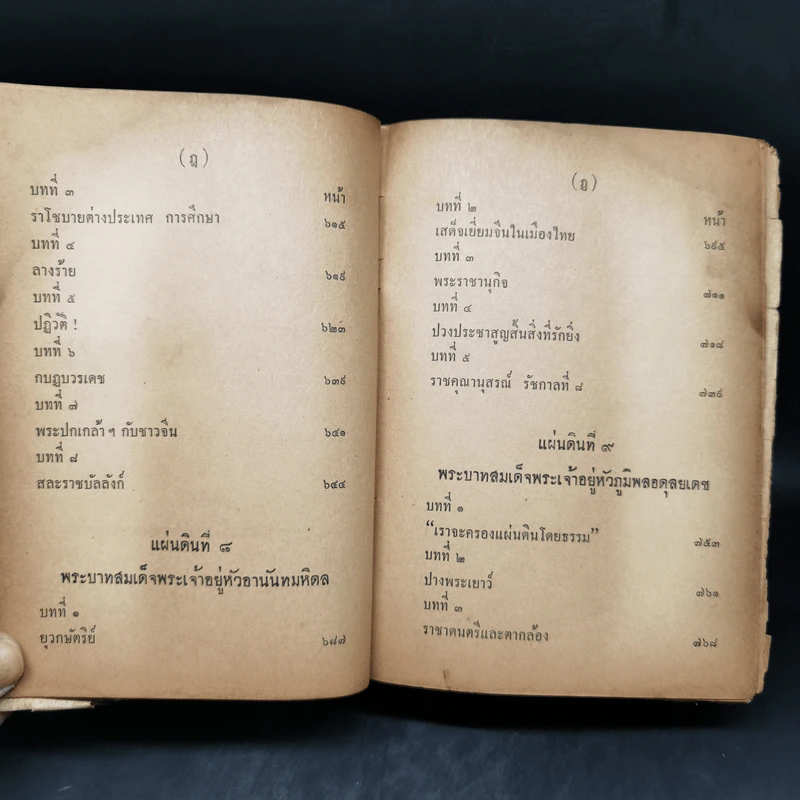 (ฎ)
บทที่ ๓ หน้า
ราโชบายต่างประเทศ การศึกษา ๖๑๕
บทที่ ๔
ลางร้าย ๖๑๙
บทที่ ๕
ปฏิวัติ ! ๖๒๓
บทที่ ๖
กบฏบวรเดช ๖๓๙
บทที่ ๗
พระปกเกล้า ฯ กับชาวจีน ๖๔๑
บทที่ ๘
สละราชบัลลังก์ ๖๔๔
แผ่นดินที่ ๘
พระบาทสมเด็จพระเจ้าอยู่หัวอานันทมหิดล
บทที่ ๑
ยุวกษัตริย์ ๖๘๗
(ฏ)
บทที่ ๒ หน้า
เสด็จเยี่ยมจีนในเมืองไทย ๖๙๕
บทที่ ๓
พระราชานุกิจ ๗๑๑
บทที่ ๔
ปวงประชาสูญสิ้นสิ่งที่รักยิ่ง ๗๑๘
บทที่ ๕
ราชคุณานุสรณ์ รัชกาลที่ ๘ ๗๓๙
แผ่นดินที่ ๙
พระบาทสมเด็จพระเจ้าอยู่หัวภูมิพลอดุลยเดช
บทที่ ๑
“เราจะครองแผ่นดินโดยธรรม” ๗๕๓
บทที่ ๒
ปางพระเยาว์ ๗๖๑
บทที่ ๓
ราชาดนตรีและตากล้อง ๗๖๘